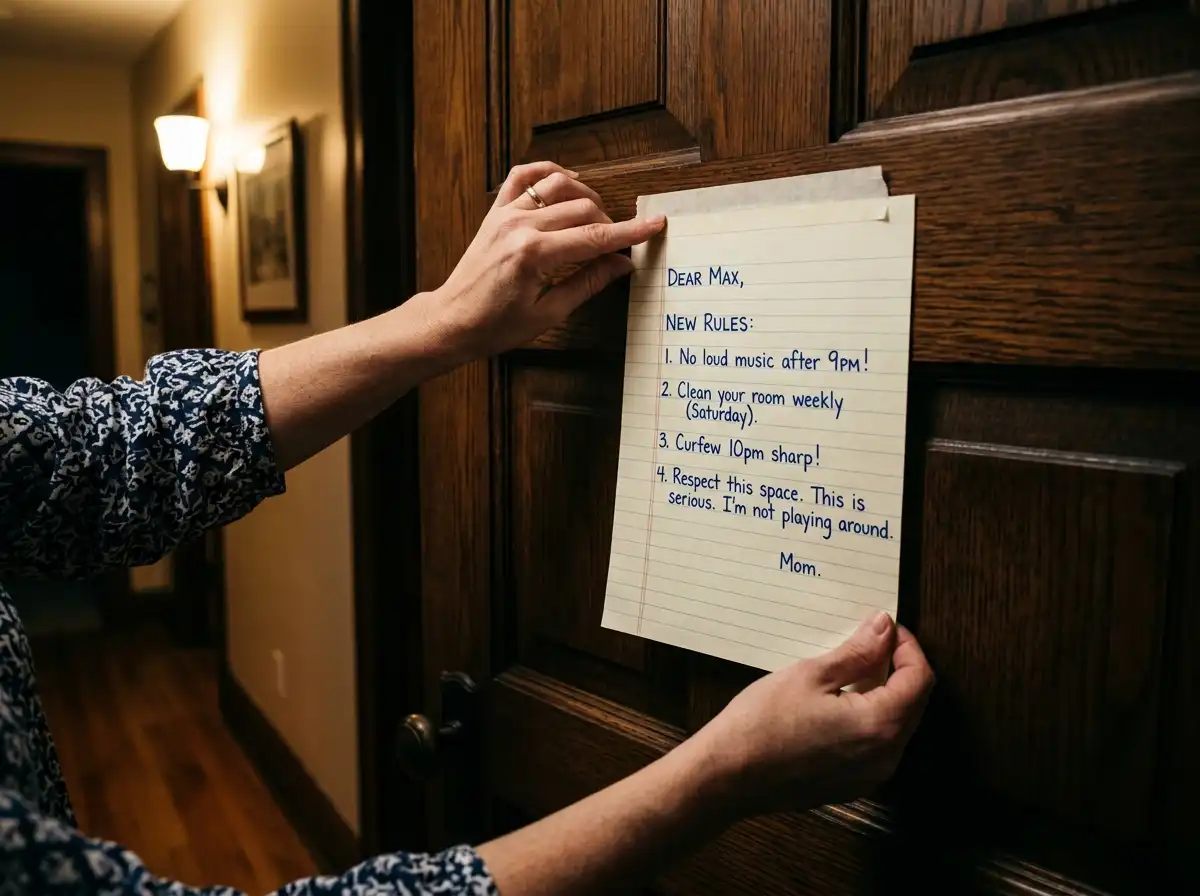 DEAR MAX,
NEW RULES:
1. No loud music after 9PM!
2. Clean your room weekly
(Saturday).
3. Curfew 10pm sharp!
4. Respect this space. This is
serious. I'm not playing around.
Mom.